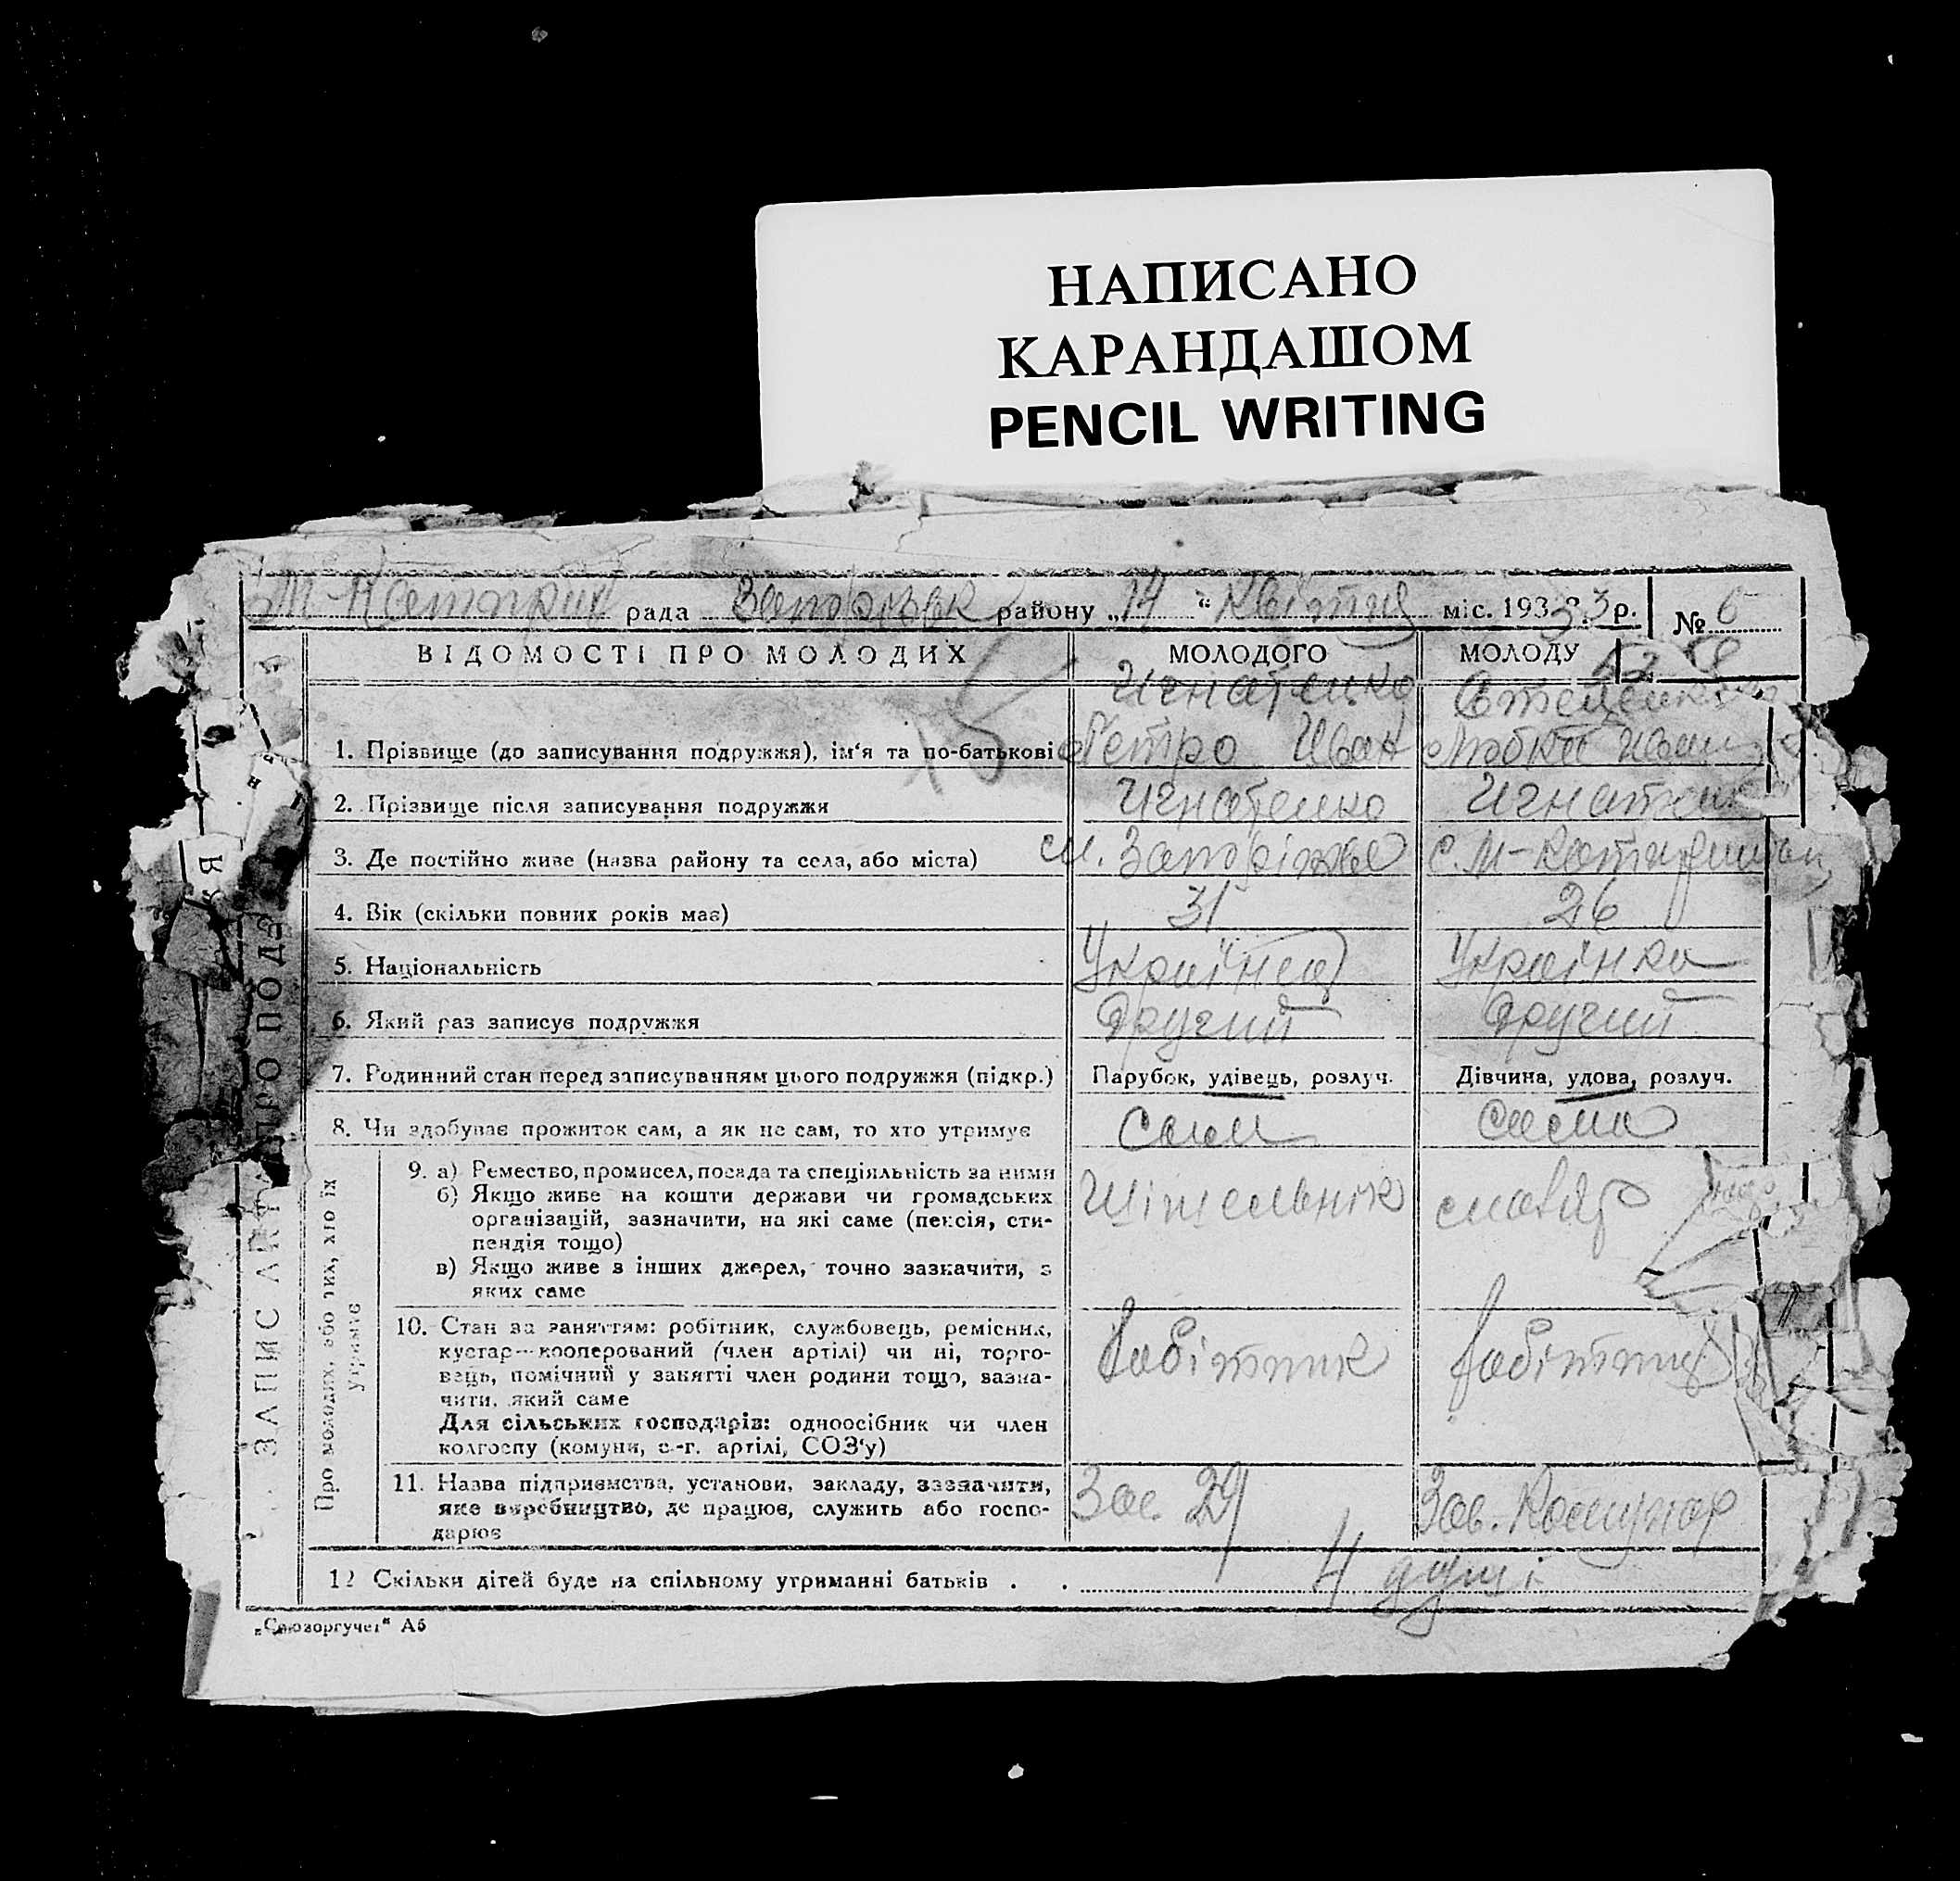 НАПИСАНО
КАРАНДАШОМ
PENCIL WRITING
рада району „14“ Квітня міс. 1933 р. № 6
ВІДОМОСТІ ПРО МОЛОДИХ МОЛОДОГО МОЛОДУ
Игнатенко
1. Прізвище (до записування подружжя), ім'я та по-батькові Петро Иван
2. Прізвище після записування подружжя Игнатенко Игнатенко
3. Де постійно живе (назва району та села, або міста) см. Запоріжжа с. М-Катиришан
4. Вік (скільки повних років має) 31 26
5. Національність Українец Украінка
6. Який раз записує подружжя Другий Другий
7. Родинний стан перед записуванням цього подружжя (підкр.) Парубок, удівець, розлуч. Дівчина, удова, розлуч.
8. Чи здобуває прожиток сам, а як не сам, то хто утримує сам сама
ЗАПИС АКТА ПРО ПОД
Про молодих, або тих, хто їх утримує
9. а) Ремество, промисел, посада та спеціяльність за ними
б) Якщо живе на кошти держави чи громадських
організацій, зазначити, на які саме (пенсія, сти-
пендія тощо)
в) Якщо живе з інших джерел, точно зазначити, з
яких саме
10. Стан за заняттям: робітник, службовець, ремісник, Робітник
кустар—кооперований (член артілі) чи ні, торго-
вець, помічний у занятті член родини тощо, зазна-
чити, який саме
Для сільських господарів: одноосібник чи член
колгоспу (комуни, с.-г. артілі, СОЗ'у)
11. Назва підприємства, установи, закладу, зазначити, Зав. 29 Зав. Комунар
яке виробництво, де працює, служить або госпо-
дарює
12 Скільки дітей буде на спільному утриманні батьків . . 4 душі
„Союзоргучет“ А6